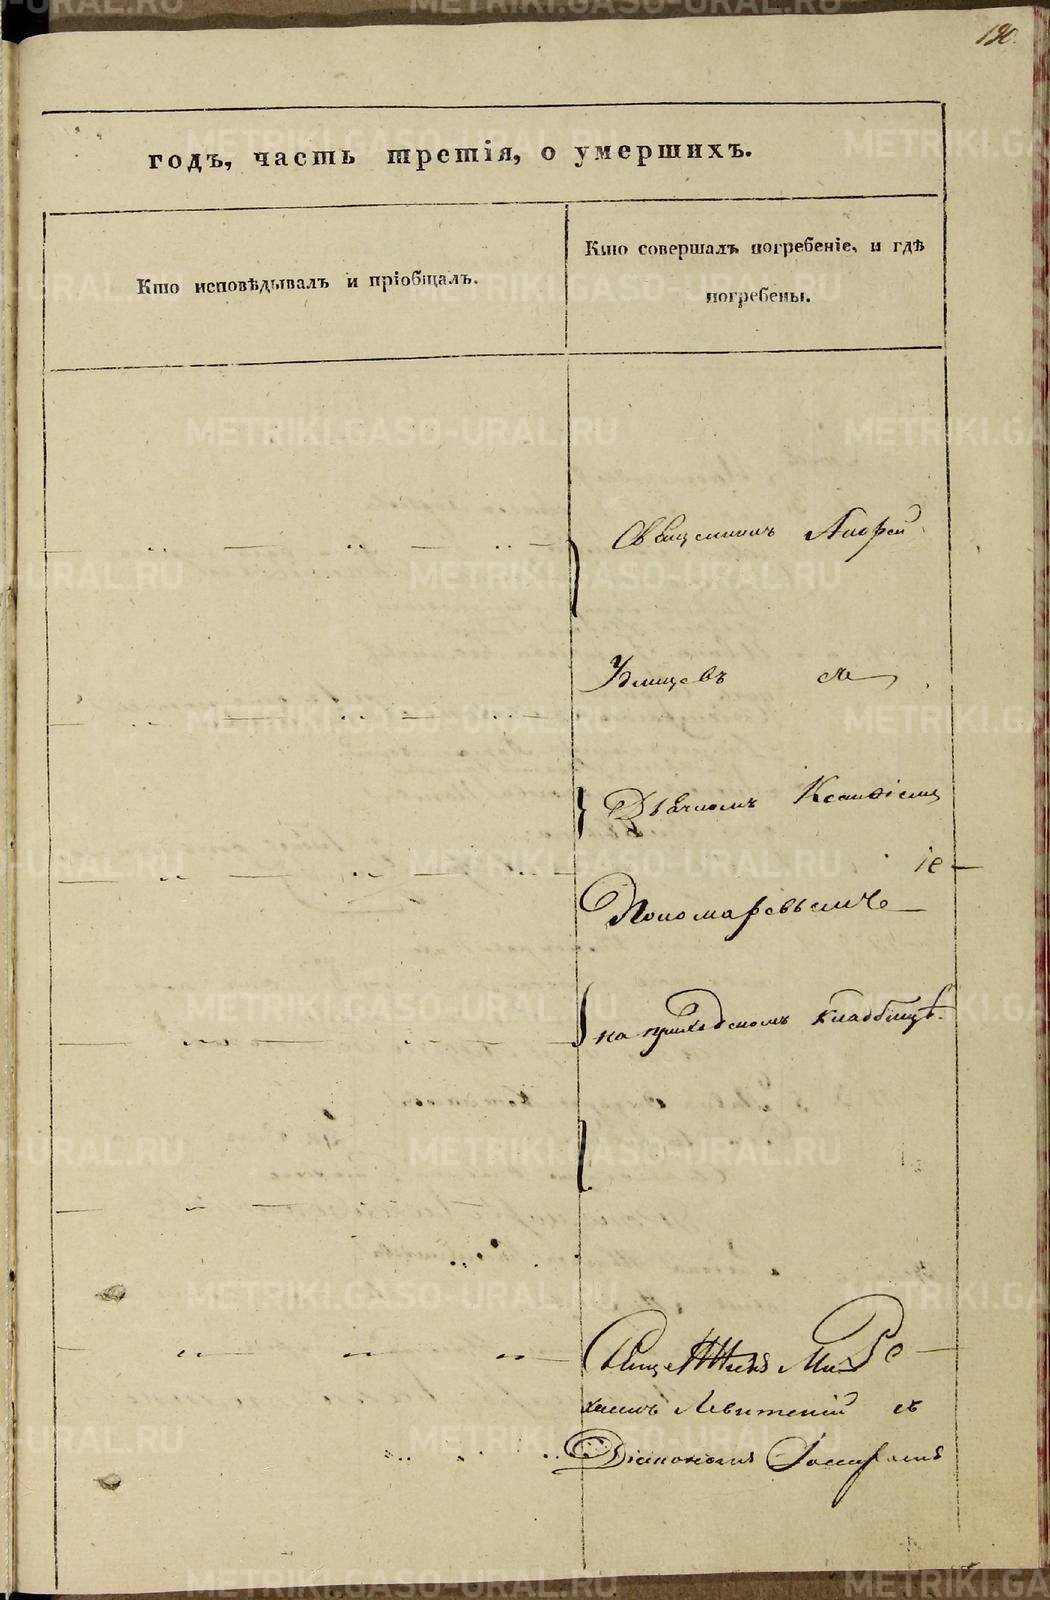 190.
годъ, часть третія, о умершихъ.
Кто исповѣдывалъ и пріобщалъ.
Кто совершалъ погребеніе, и гдѣ
погребены.
Священникъ Андрей
съ
Дьячкомъ
Пономаревымъ
на приходскомъ кладбищѣ.
Священникъ Ми
хаилъ Левитскій съ
Діакономъ
METRIKI.GASO-URAL.RU